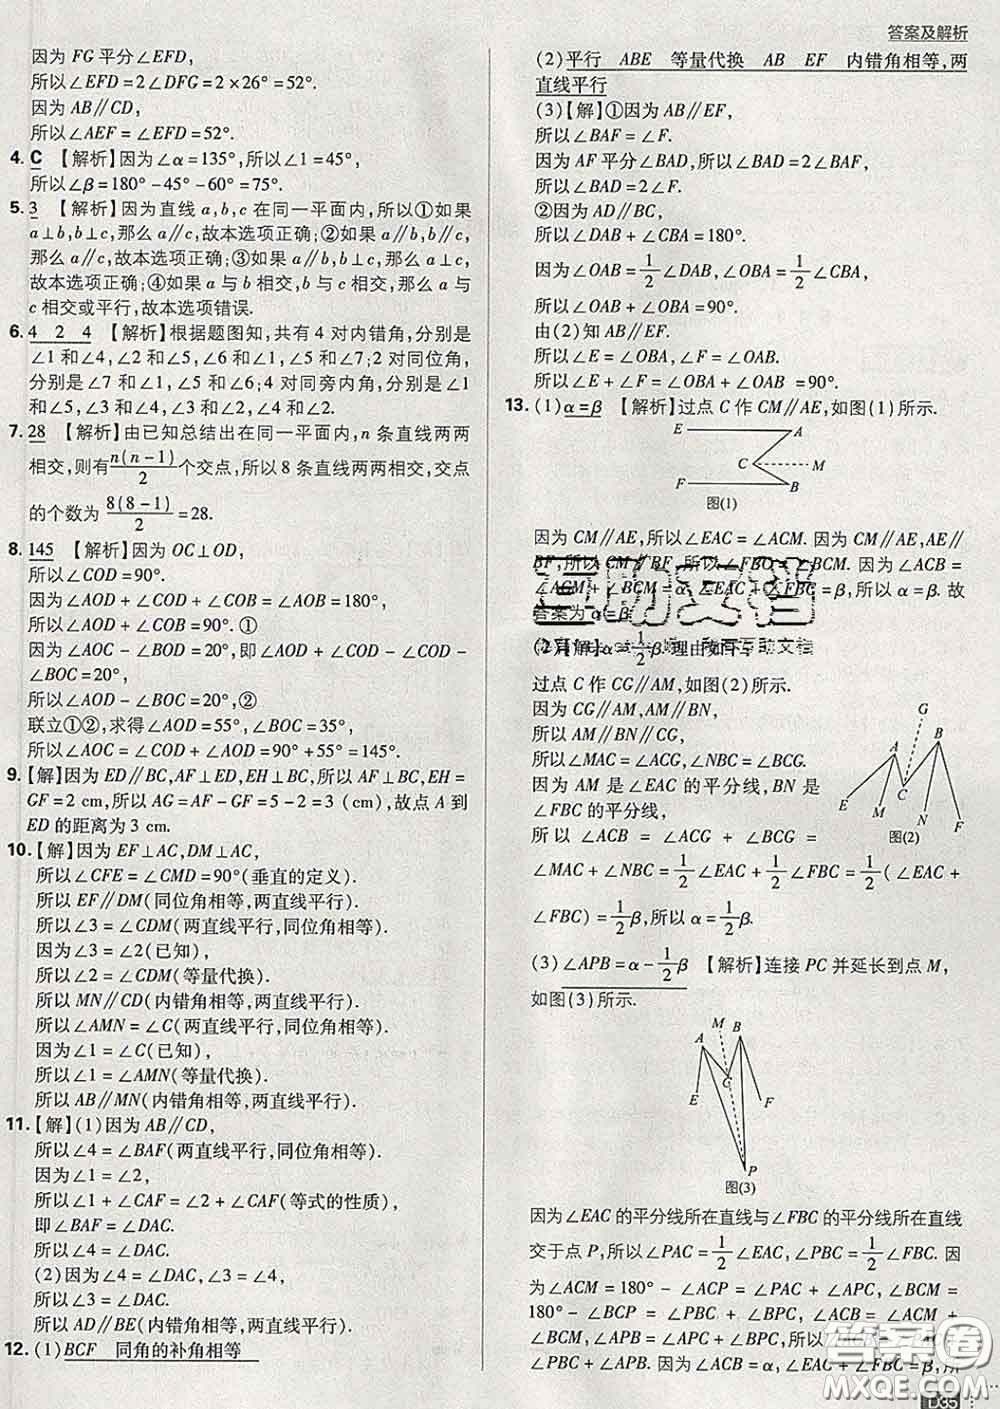 答案及解析
因为 FG 平分∠EFD,
所以∠EFD=2∠DFG=2×26°=52°.
因为 AB∥CD,
所以∠AEF=∠EFD=52°.
4. C 【解析】因为∠α=135°,所以∠1=45°,
所以∠β=180°-45°-60°=75°.
5. 3 【解析】因为直线 a,b,c 在同一平面内,所以①如果
a⊥b,b⊥c,那么 a∥c,故本选项正确;②如果 a∥b,b∥c,
那么 a∥c,故本选项正确;③如果 a∥b,b⊥c,那么 a⊥c,
故本选项正确;④如果 a 与 b 相交,b 与 c 相交,那么 a 与
c 相交或平行,故本选项错误.
6. 4 2 4 【解析】根据题图知,共有 4 对内错角,分别是
∠1 和∠4,∠2 和∠5,∠6 和∠2,∠5 和∠7;2 对同位角,
分别是∠7 和∠1,∠5 和∠6;4 对同旁内角,分别是∠1
和∠5,∠3 和∠4,∠3 和∠2,∠4 和∠2.
7. 28 【解析】由已知总结出在同一平面内,n 条直线两两
相交,则有 n(n-1)/2 个交点,所以 8 条直线两两相交,交点
的个数为 8(8-1)/2 =28.
8. 145 【解析】因为 OC⊥OD,
所以∠COD=90°.
因为∠AOD+∠COD+∠COB=∠AOB=180°,
所以∠AOD+∠BOC=90°.①
因为∠AOC-∠BOD=20°,即∠AOD+∠COD-∠COD-
∠BOC=20°,
所以∠AOD-∠BOC=20°,②
联立①②,求得∠AOD=55°,∠BOC=35°,
所以∠AOC=∠COD+∠AOD=90°+55°=145°.
9. 【解】因为 ED∥BC,AF⊥ED,EH⊥BC,所以 AF⊥BC,EH=
GF=2 cm,所以 AG=AF-GF=5-2=3(cm),故点 A 到
ED 的距离为 3 cm.
10. 【解】因为 EF⊥AC,DM⊥AC,
所以∠CFE=∠CMD=90°(垂直的定义).
所以 EF∥DM(同位角相等,两直线平行).
所以∠3=∠CDM(两直线平行,同位角相等).
因为∠3=∠2(已知),
所以∠2=∠CDM(等量代换).
所以 MN∥CD(内错角相等,两直线平行).
所以∠AMN=∠C(两直线平行,同位角相等).
因为∠1=∠C(已知),
所以∠1=∠AMN(等量代换).
所以 AB∥MN(内错角相等,两直线平行).
11. 【解】(1)因为 AB∥CD,
所以∠4=∠BAF(两直线平行,同位角相等).
因为∠1=∠2,
所以∠1+∠CAF=∠2+∠CAF(等式的性质),
即∠BAF=∠DAC.
所以∠4=∠DAC.
(2)因为∠4=∠DAC,∠3=∠4,
所以∠3=∠DAC.
所以 AD∥BE(内错角相等,两直线平行).
12. (1)BCF 同角的补角相等
(2)平行 ABE 等量代换 AB EF 内错角相等,两
直线平行
(3)【解】①因为 AB∥EF,
所以∠BAF=∠F.
因为 AF 平分∠BAD,所以∠BAD=2∠BAF,
所以∠BAD=2∠F.
②因为 AD∥BC,
所以∠DAB+∠CBA=180°.
因为∠OAB=1/2∠DAB,∠OBA=1/2∠CBA,
所以∠OAB+∠OBA=90°.
由(2)知 AB∥EF,
所以∠E=∠OBA,∠F=∠OAB.
所以∠E+∠F=∠OBA+∠OAB=90°.
13. (1)α=β 【解析】过点 C 作 CM∥AE,如图(1)所示.
E A
C M
F B
图(1)
因为 CM∥AE,所以∠EAC=∠ACM.因为 CM∥AE,AE∥
BF,所以 CM∥BF,所以∠FBC=∠BCM.因为∠ACB=
∠ACM+∠BCM=α,∠EAC+∠FBC=β,所以 α=β.故
答案为 α=β.
(2)【解】α=1/2β.理由如下:
过点 C 作 CG∥AM,如图(2)所示.
因为 CG∥AM,AM∥BN,
所以 AM∥BN∥CG.
所以∠MAC=∠ACG,∠NBC=∠BCG.
因为 AM 是∠EAC 的平分线,BN 是
∠FBC 的平分线,
G
A B
C
E M N F
图(2)
所以∠ACB=∠ACG+∠BCG=
∠MAC+∠NBC=1/2∠EAC+1/2∠FBC=1/2(∠EAC+
∠FBC)=1/2β,所以 α=1/2β.
(3)∠APB=α-1/2β 【解析】连接 PC 并延长到点 M,
如图(3)所示.
M B
A
C
E F
P
图(3)
因为∠EAC 的平分线所在直线与∠FBC 的平分线所在直线
交于点 P,所以∠PAC=1/2∠EAC,∠PBC=1/2∠FBC.因
为∠ACM=180°-∠ACP=∠PAC+∠APC,∠BCM=
180°-∠BCP=∠PBC+∠BPC,所以∠ACB=∠ACM+
∠BCM,∠APB=∠APC+∠BPC,所以∠ACB=∠PAC+
∠PBC+∠APB.因为∠ACB=α,∠EAC+∠FBC=β,所
D35
互助文档
答案圈
MXQE.COM